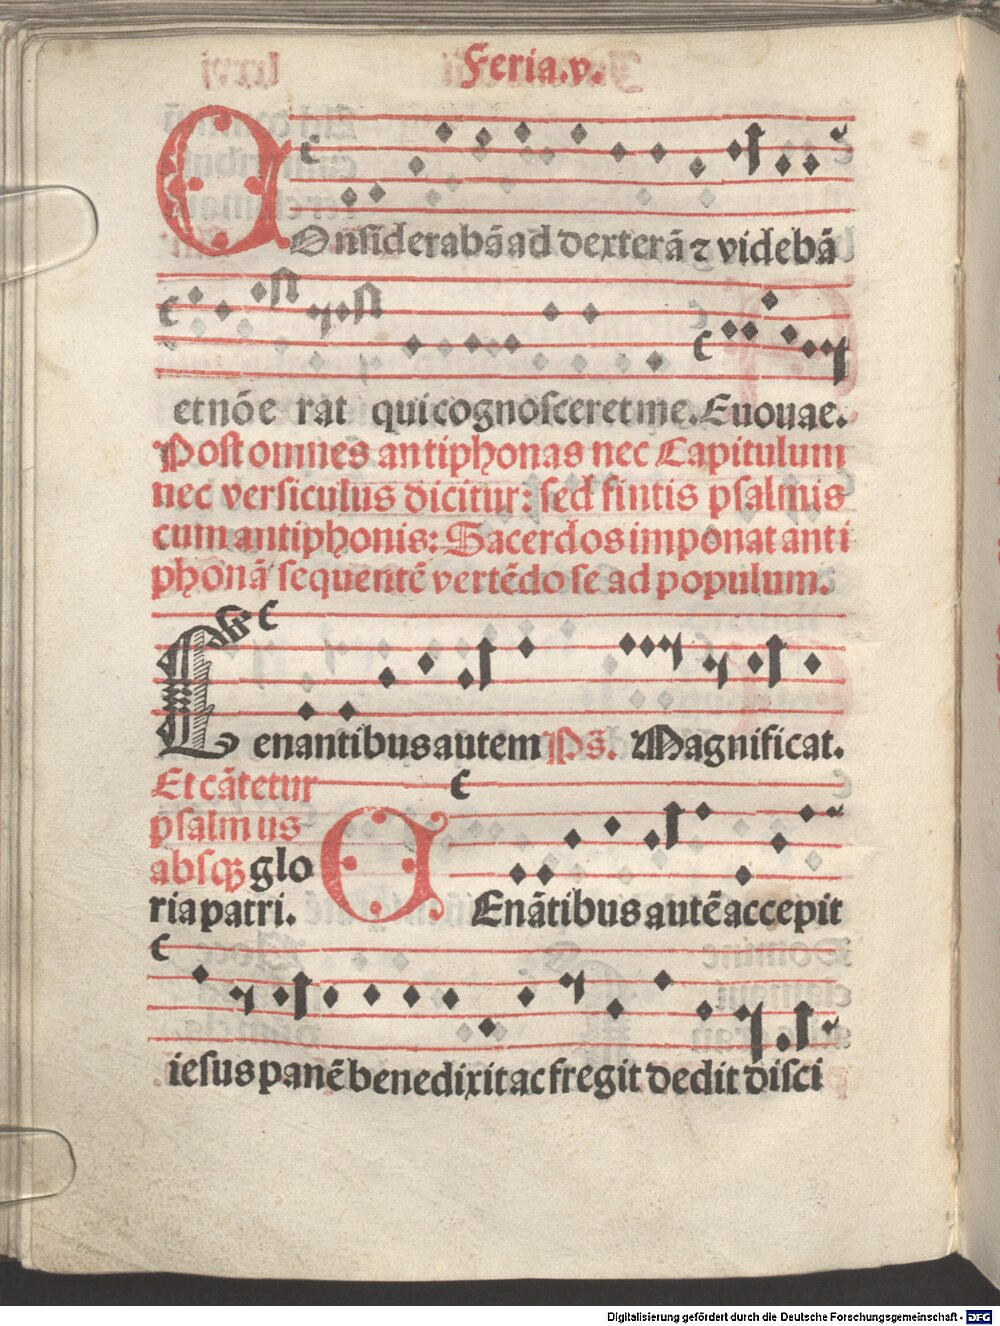 Feria.v.
COnsiderabā ad dexterā ⁊ videbā
et nō e rat qui cognosceret me. Euouae.
Post omnes antiphonas nec Capitulum
nec versiculus dicitur: sed fintis psalmis
cum antiphonis: Sacerdos imponat anti
phonā sequentē vertēdo se ad populum.
Cenantibus autem Ps̄. Magnificat.
Et cātetur
psalmus
absqꝫ glo
ria patri.
CEnātibus autē accepit
iesus panē benedixit ac fregit dedit disci
Digitalisierung gefördert durch die Deutsche Forschungsgemeinschaft - DFG